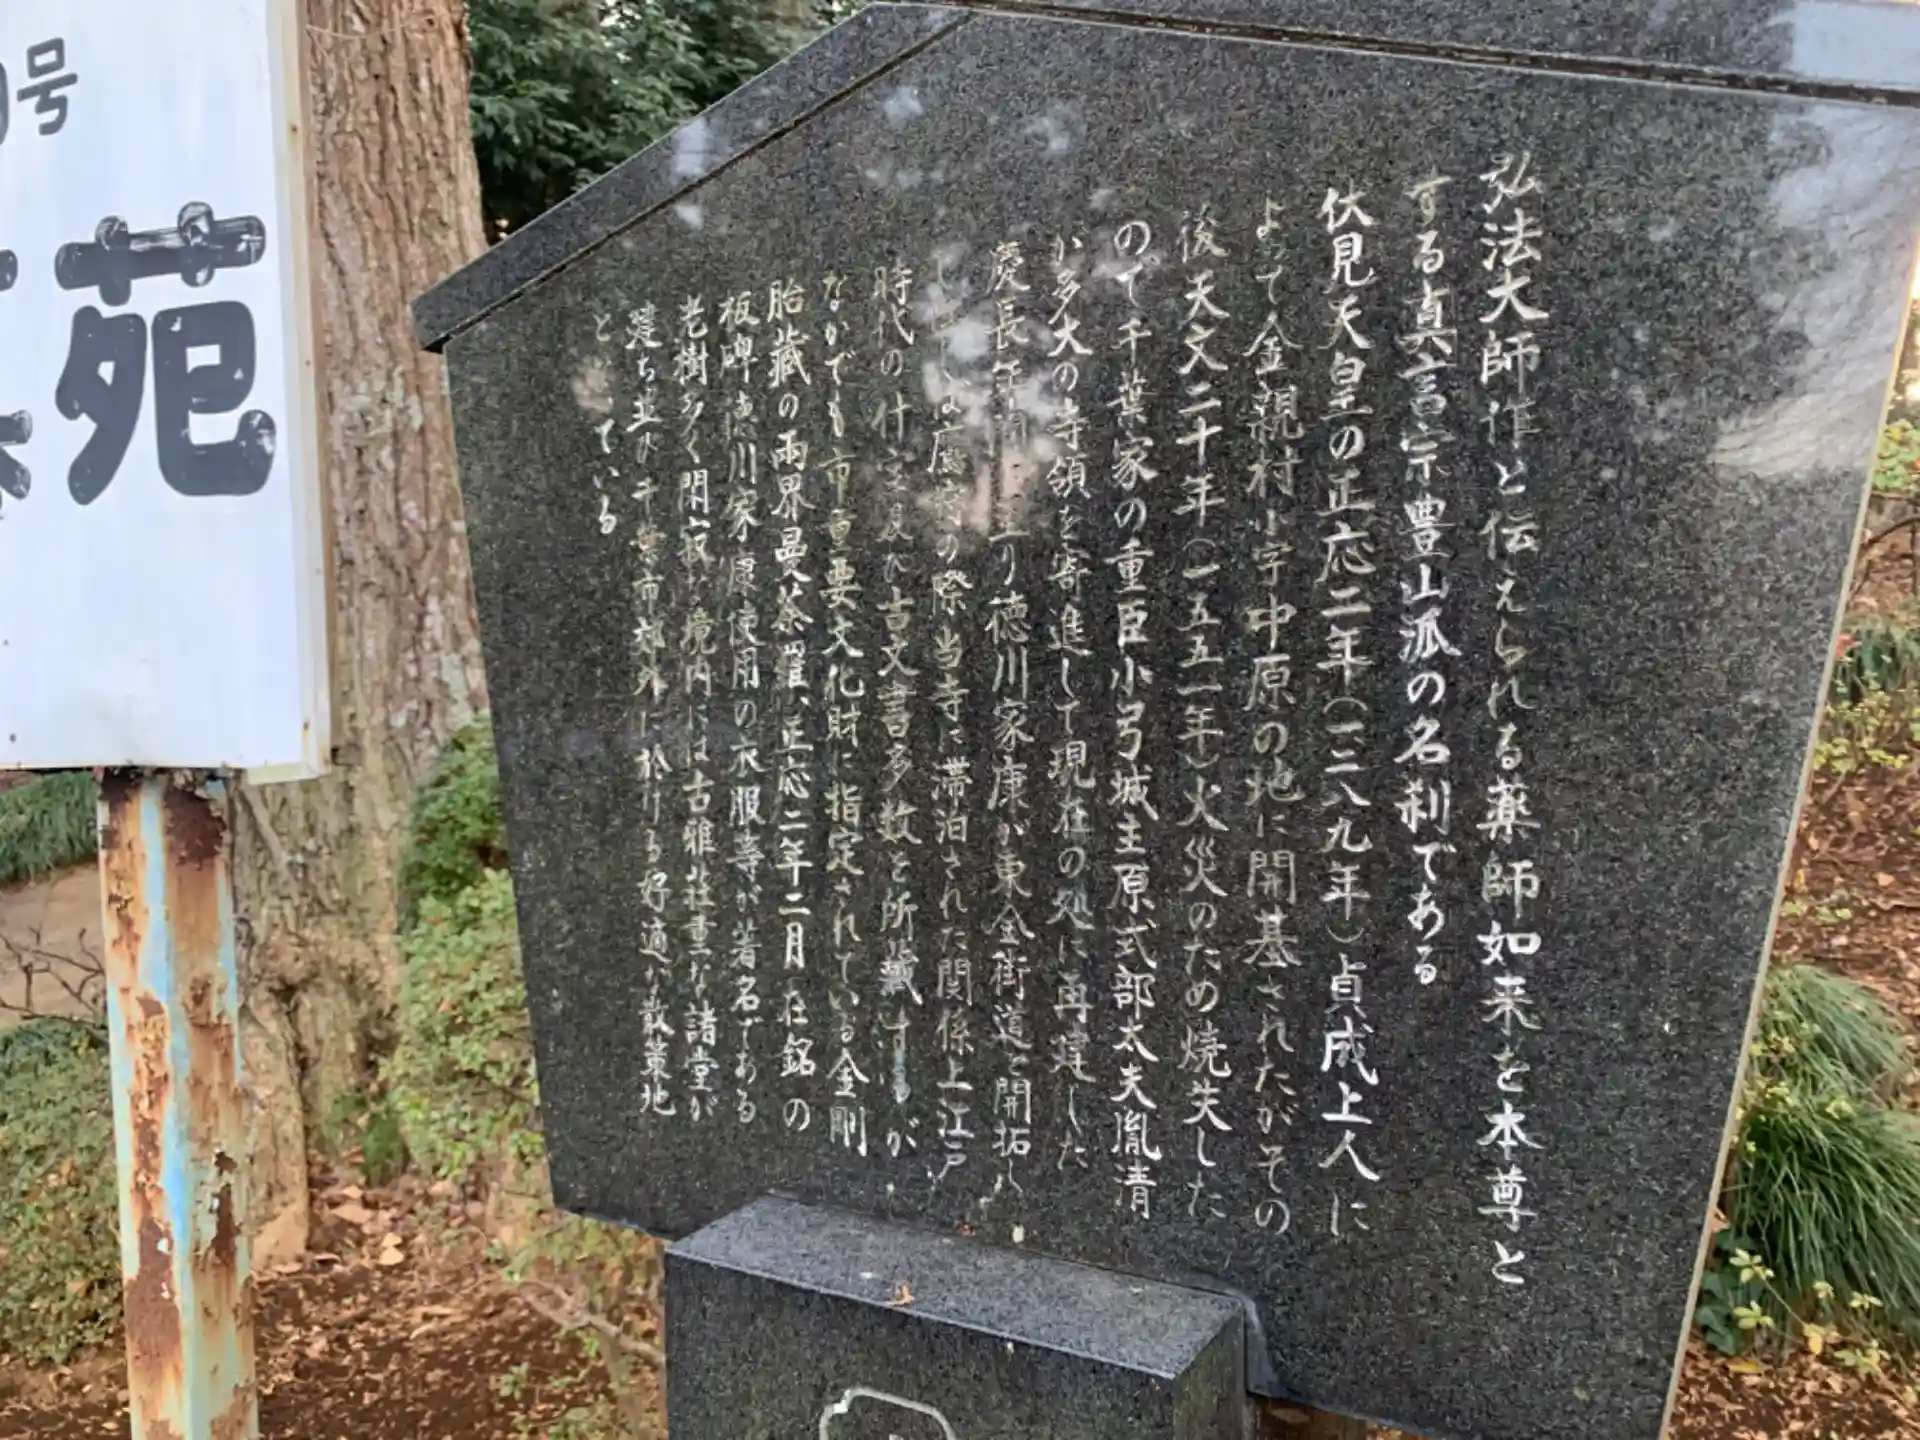 弘法大師作と伝えられる薬師如来を本尊と
する真言宗豊山派の名刹である
伏見天皇の正応二年(一二八九年)貞成上人に
よって金親村小字中原の地に開基されたがその
後天文二十年(一五五一年)火災のため焼失した
ので千葉家の重臣小弓城主原式部太夫胤清
が多大の寺領を寄進して現在の処に再建した
慶長年間に至り徳川家康が東金街道を開拓し
鷹狩の際当寺に滞泊された関係上江戸
時代の什宝及び古文書多数を所蔵するが
なかでも市重要文化財に指定されている金剛
胎蔵の両界曼荼羅、正応二年二月在銘の
板碑徳川家康使用の衣服等が著名である
老樹多く閑寂な境内には古雅荘重な諸堂が
建ち並び千葉市郊外に於ける好適な散策地
と ている
号
苑